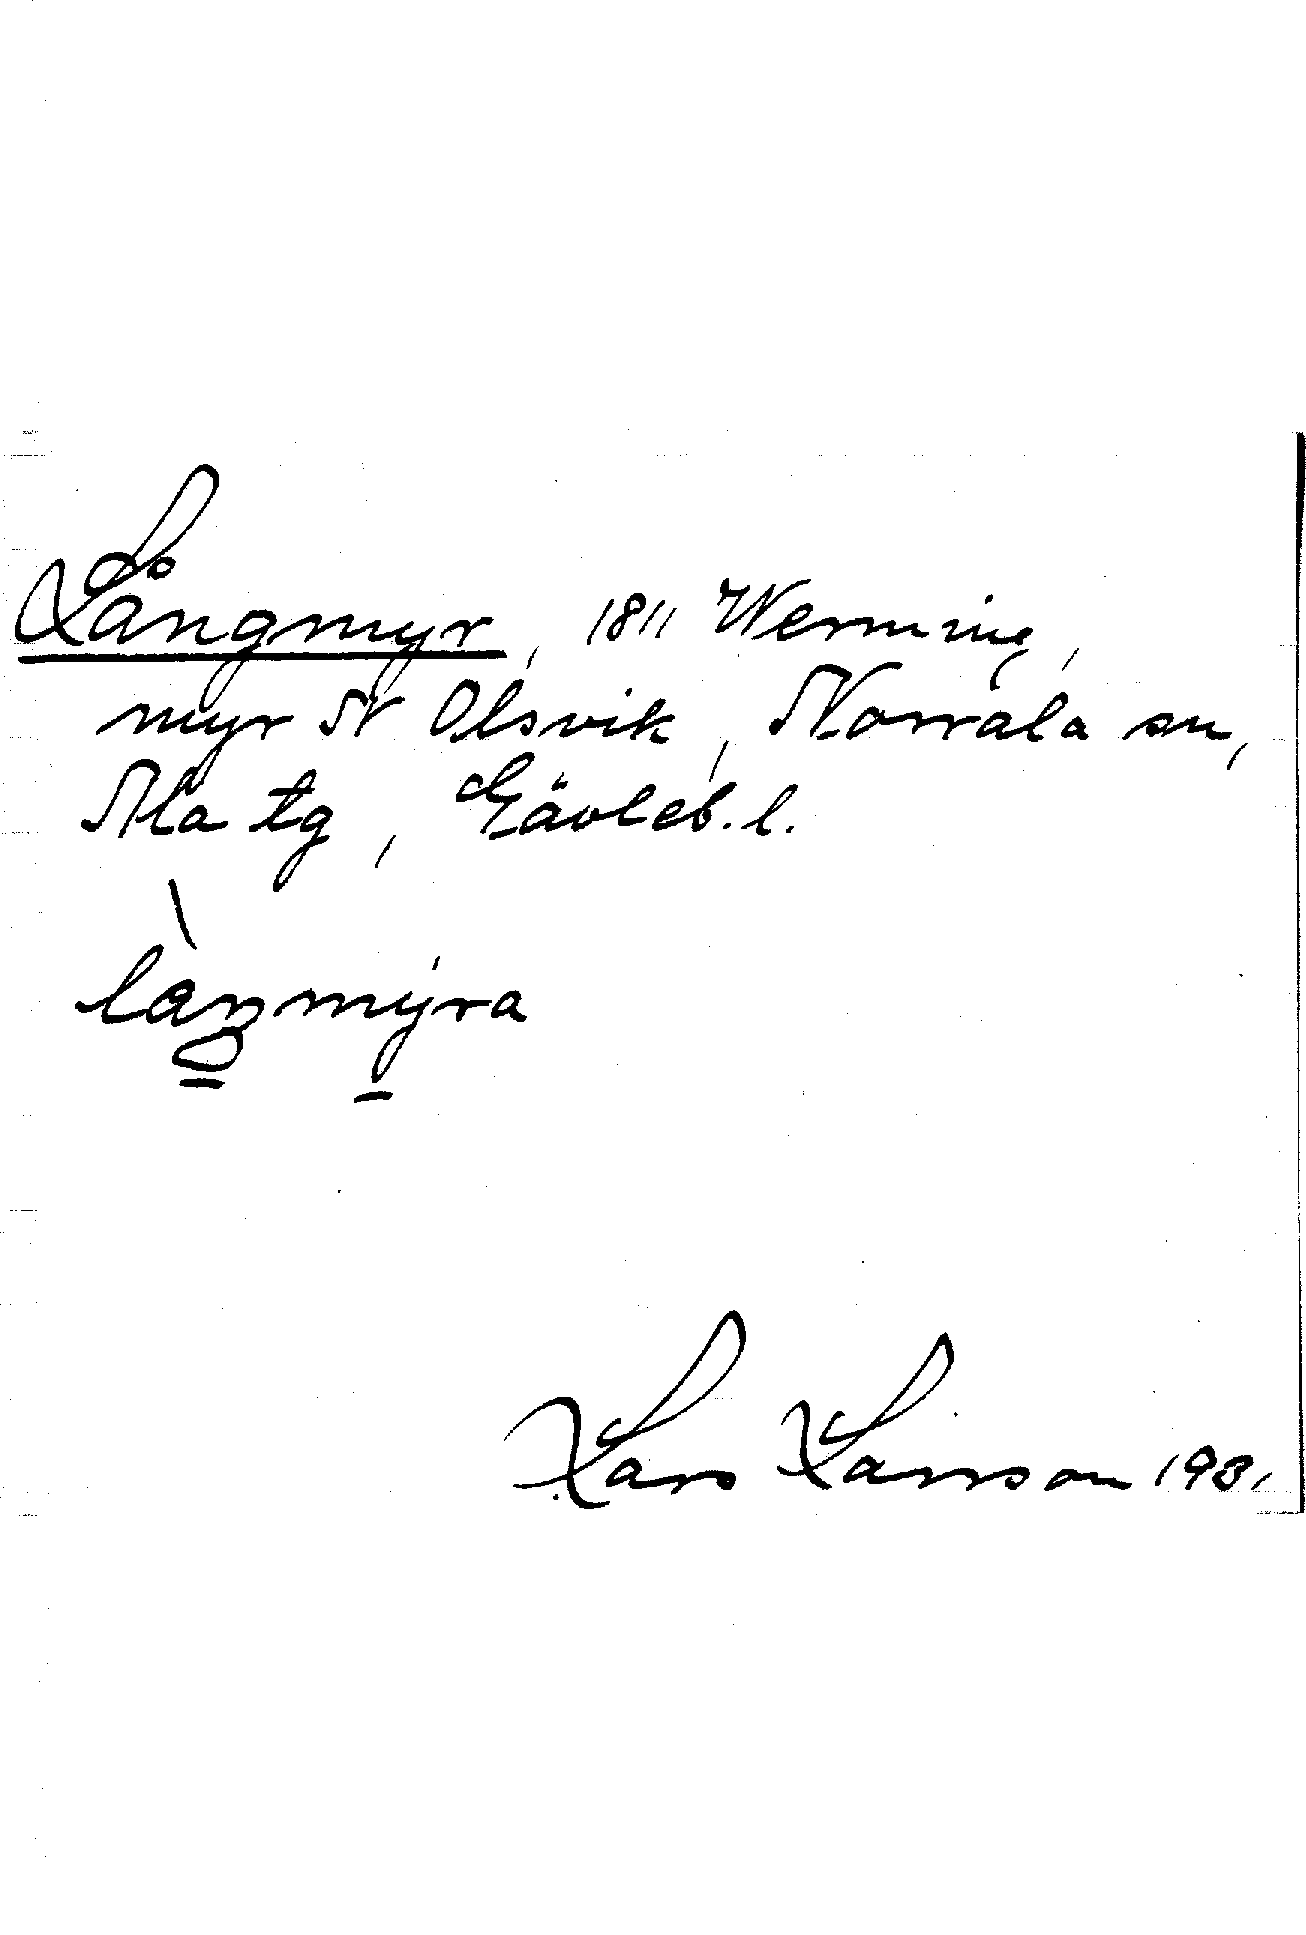 Långmyr, 1811 Werming,
myr N Olsvik, Norrala sn,
Ala tg, Gävleb.l.
làŋmýra
Lars Larsson 1931